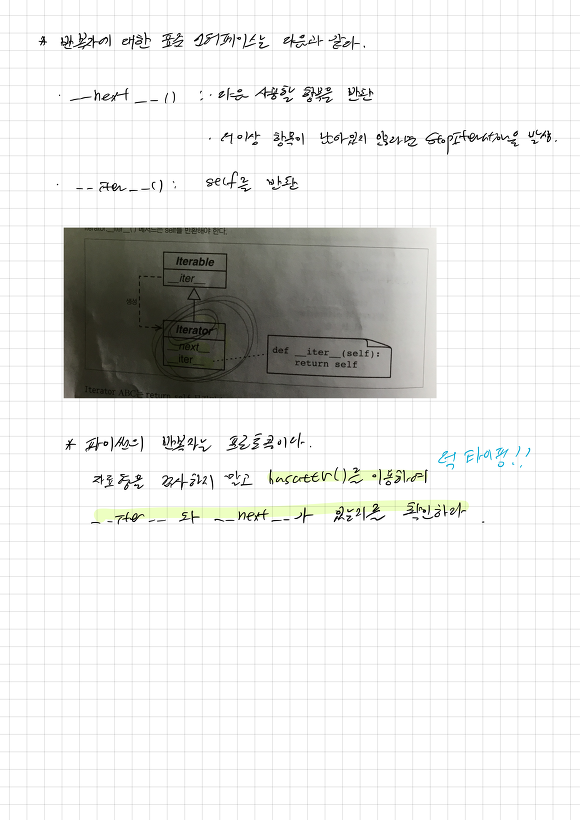 * 반복자에 대한 표준 인터페이스는 다음과 같다.
· __next__() : · 다음 사용할 항목을 반환
· 더이상 항목이 남아있지 않다면 StopIteration을 발생.
· __iter__() : self를 반환
Iterator.__iter__() 메서드는 self를 반환해야 한다.
iterable
__iter__
생성
iterator
__next__
__iter__
def __iter__(self):
return self
Iterator ABC는 return self
* 파이썬의 반복자는 프로토콜이다.
자료형을 검사하지 말고 hasattr()를 이용하여
덕 타이핑!!
__iter__ 와 __next__가 있는지를 확인하라.